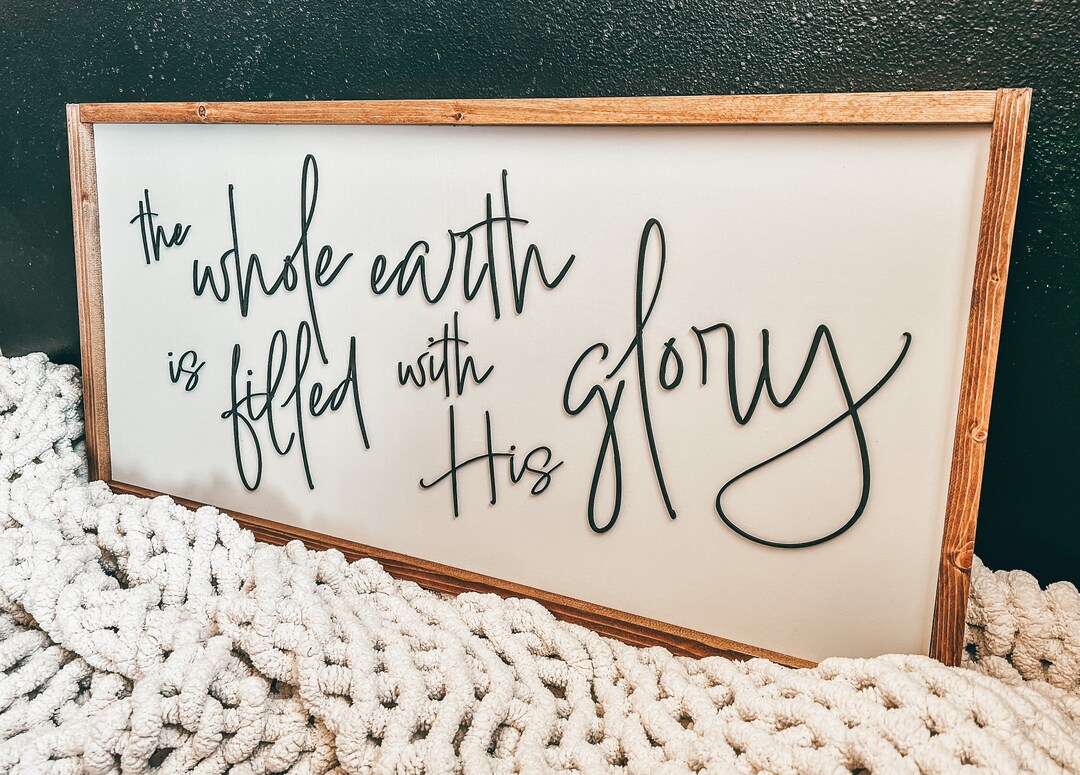 the whole earth
is filled with His glory